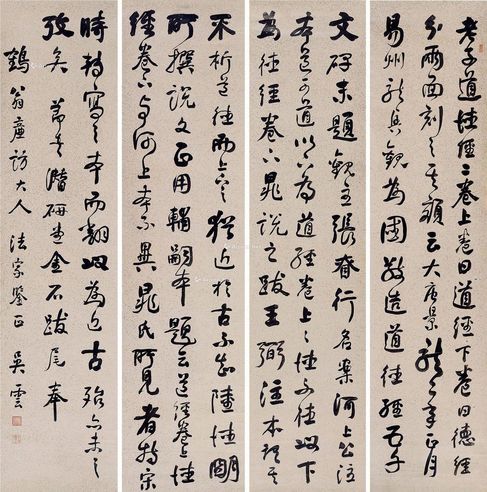 老子道德經二卷上卷曰道經下卷曰德經
分兩面刻之其額云大唐景龍二年正月
易州龍興觀為國敬造道德經五千
文碑末題觀主張眘行名案河上公注
本道可道以下為道經卷上上德不德以下
為德經卷下晁說之跋王弼注本謂其
不析道德而上下之猶近於古不知陸德明
所撰說文正用輔嗣本題云道經卷上德
經卷下與河上本不異晁氏所見者特宋
時轉寫之本而翻以為近古殆亦未之
攷矣 節書潛研堂金石跋尾奉
鶴翁廉訪大人法家鑒正 吳雲